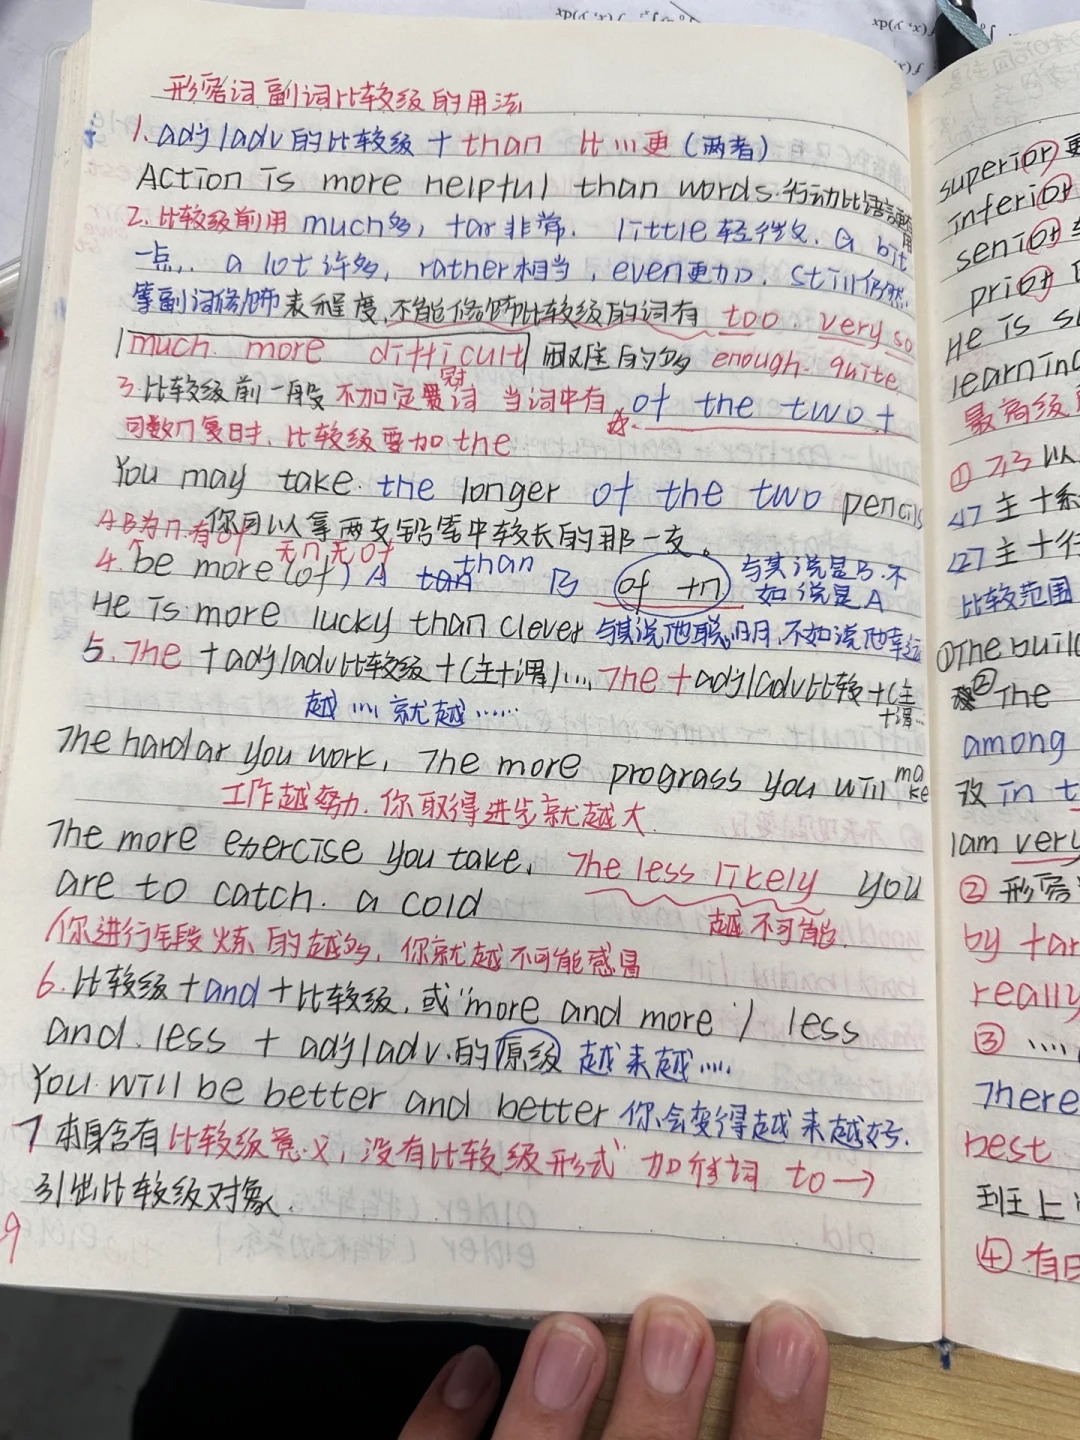 形容词副词比较级的用法
1. adj/adv的比较级 + than 比…更 (两者)
Action is more helpful than words. 行动比语言更有用
2. 比较级前用 much多, far非常, little轻微, a bit
一点, a lot许多, rather相当, even更加, still仍然,
等副词修饰表示程度,不能修饰比较级的词有 too, very so
much more difficult 困难的多 enough. quite
3. 比较级前一般不加定冠词 当词中有☆ of the two +
可数n复时, 比较级要加 the
You may take the longer of the two pencils
A B为n.有of 你可以拿两支铅笔中较长的那一支。
无n无of
4. be more (of) A than B of +n 与其说是B.不如说是A
He is more lucky than clever 与其说他聪明,不如说他幸运
5. The + adj/adv比较级 + (主+谓)…, The + adj/adv比较 + (主+谓…
越…就越……
The hardar you work, The more prograss you will make
工作越努力.你取得进步就越大.
The more exercise you take, The less likely you
are to catch. a cold 越不可能.
你进行锻炼的越多, 你就越不可能感冒
6. 比较级 + and + 比较级, 或 "more and more / less
and less + adj/adv.的原级 越来越……
You will be better and better 你会变得越来越好.
7 本身含有比较级意义, 没有比较级形式 加介词 to →
引出比较级对象.
superior
inferior
senior
prior
He is
learning
最高级
①
主+系
主+行
比较范围
①The
② The
among
改 in
I am very
② 形容
by far
really
③ ……
There
best
班上
④ 有